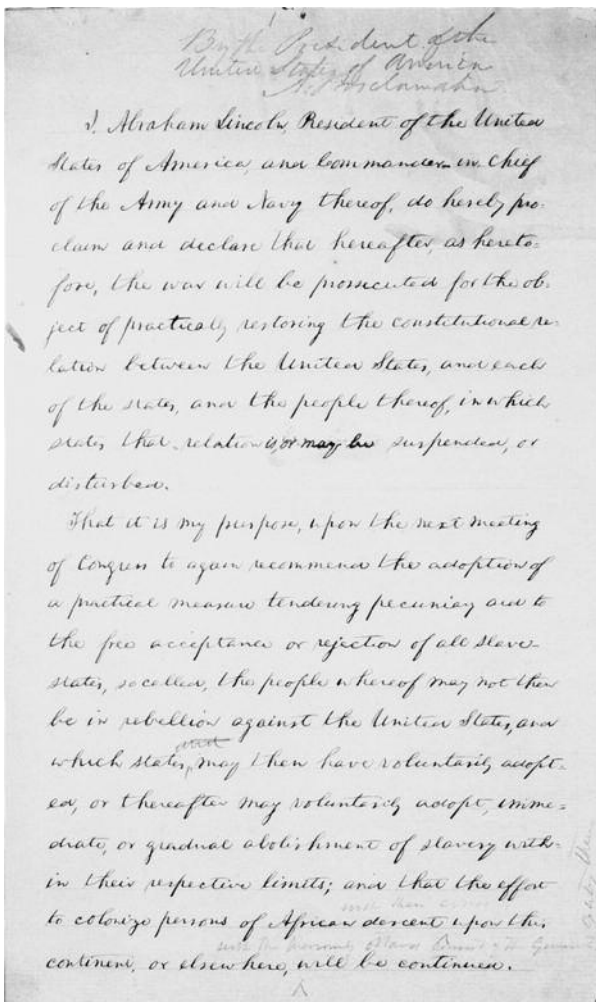 By the President of the
United States of America
A Proclamation
I, Abraham Lincoln, President of the United
States of America, and Commander-in-Chief
of the Army and Navy thereof, do hereby pro-
claim and declare that hereafter, as hereto-
fore, the war will be prossecuted for the ob-
ject of practically restoring the constitutional re-
lation between the United States, and each
of the states, and the people thereof, in which
states that relation is, or may be suspended, or
disturbed.
That it is my purpose, upon the next meeting
of Congress to again recommend the adoption of
a practical measure tendering pecuniary aid to
the free acceptance or rejection of all slave-
states, so called, the people whereof may not then
be in rebellion against the United States, and
which states, may then have voluntarily adopt-
ed, or thereafter may voluntarily adopt, imme-
diate, or gradual abolishment of slavery with-
in their respective limits; and that the effort
to colonize persons of African descent upon this
continent, or elsewhere, will be continued.